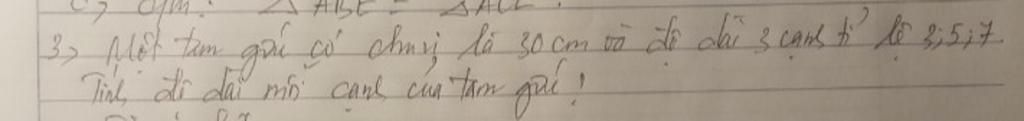 c, c/m: △ ABE = △ ACE.
3, Một tam giác có chu vi là 30 cm và độ dài 3 cạnh tỉ lệ 3;5;7.
Tính độ dài mỗi cạnh của tam giác!